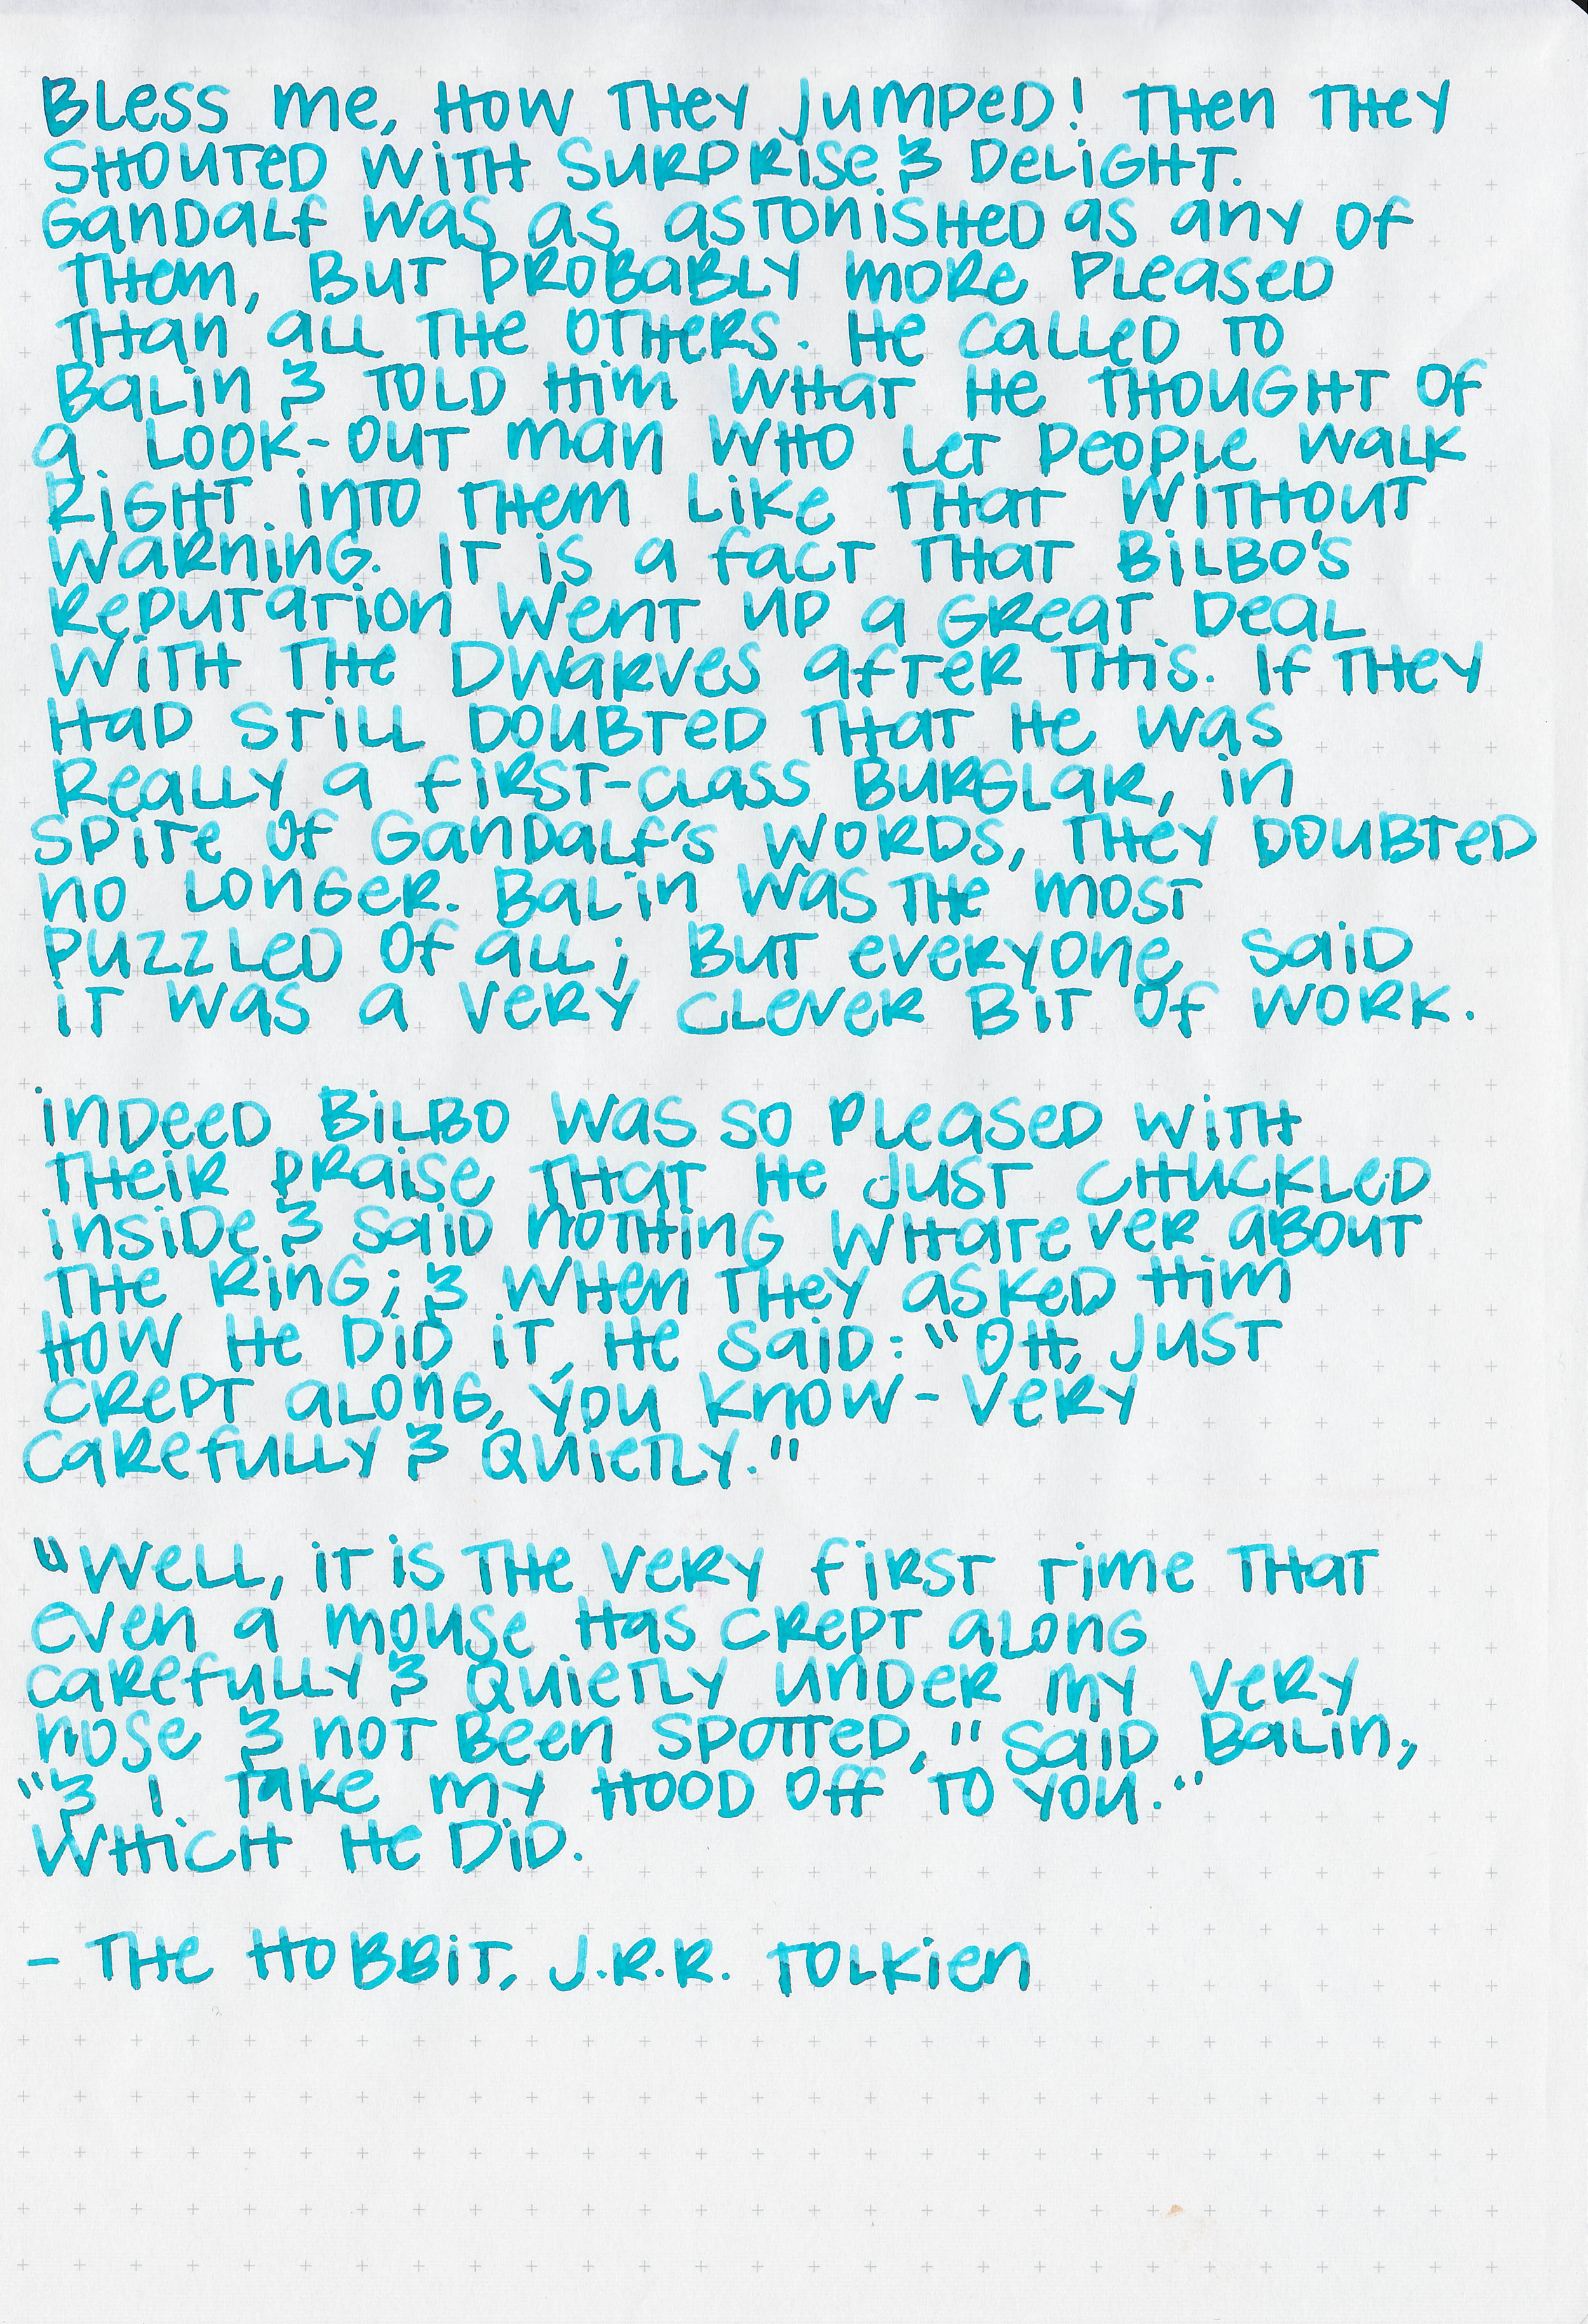 Bless me, how they jumped! Then they
shouted with surprise & delight.
Gandalf was as astonished as any of
them, but probably more pleased
than all the others. He called to
Balin & told him what he thought of
a look-out man who let people walk
right into them like that without
warning. It is a fact that Bilbo's
reputation went up a great deal
with the dwarves after this. If they
had still doubted that he was
really a first-class burglar, in
spite of Gandalf's words, they doubted
no longer. Balin was the most
puzzled of all; but everyone said
it was a very clever bit of work.
Indeed Bilbo was so pleased with
their praise that he just chuckled
inside & said nothing whatever about
the ring; & when they asked him
how he did it, he said: "Oh, just
crept along, you know - very
carefully & quietly."
"Well, it is the very first time that
even a mouse has crept along
carefully & quietly under my very
nose & not been spotted," said Balin,
"& I take my hood off to you."
Which he did.
- The Hobbit, J.R.R. Tolkien